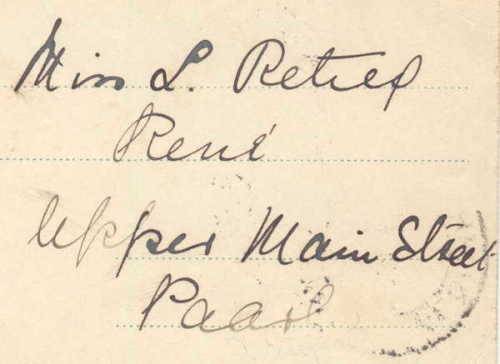 Miss L. Retief
René
Upper Main Street
Paarl